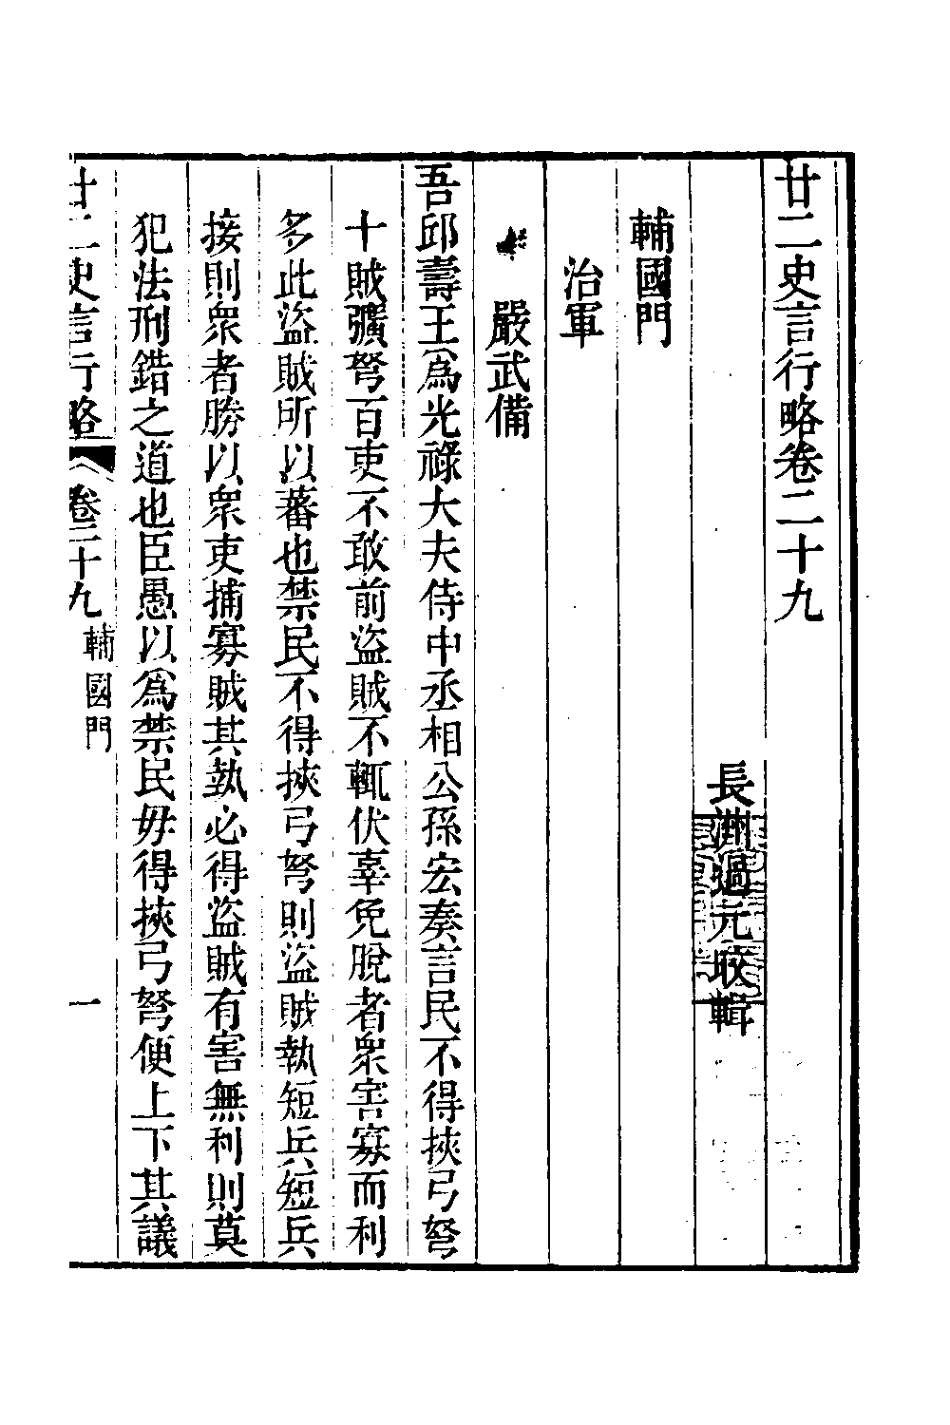 廿二史言行略卷二十九
長洲過元㫤輯
輔國門
治軍
嚴武備
吾邱壽王爲光祿大夫侍中丞相公孫宏奏言民不得挾弓弩
十賊彍弩百吏不敢前盜賊不輒伏辜免脫者衆害寡而利
多此盜賊所以蕃也禁民不得挾弓弩則盜賊執短兵短兵
接則衆者勝以衆吏捕寡賊其執必得盜賊有害無利則莫
犯法刑錯之道也臣愚以爲禁民毋得挾弓弩便上下其議
廿二史言行略 卷二十九 輔國門 一